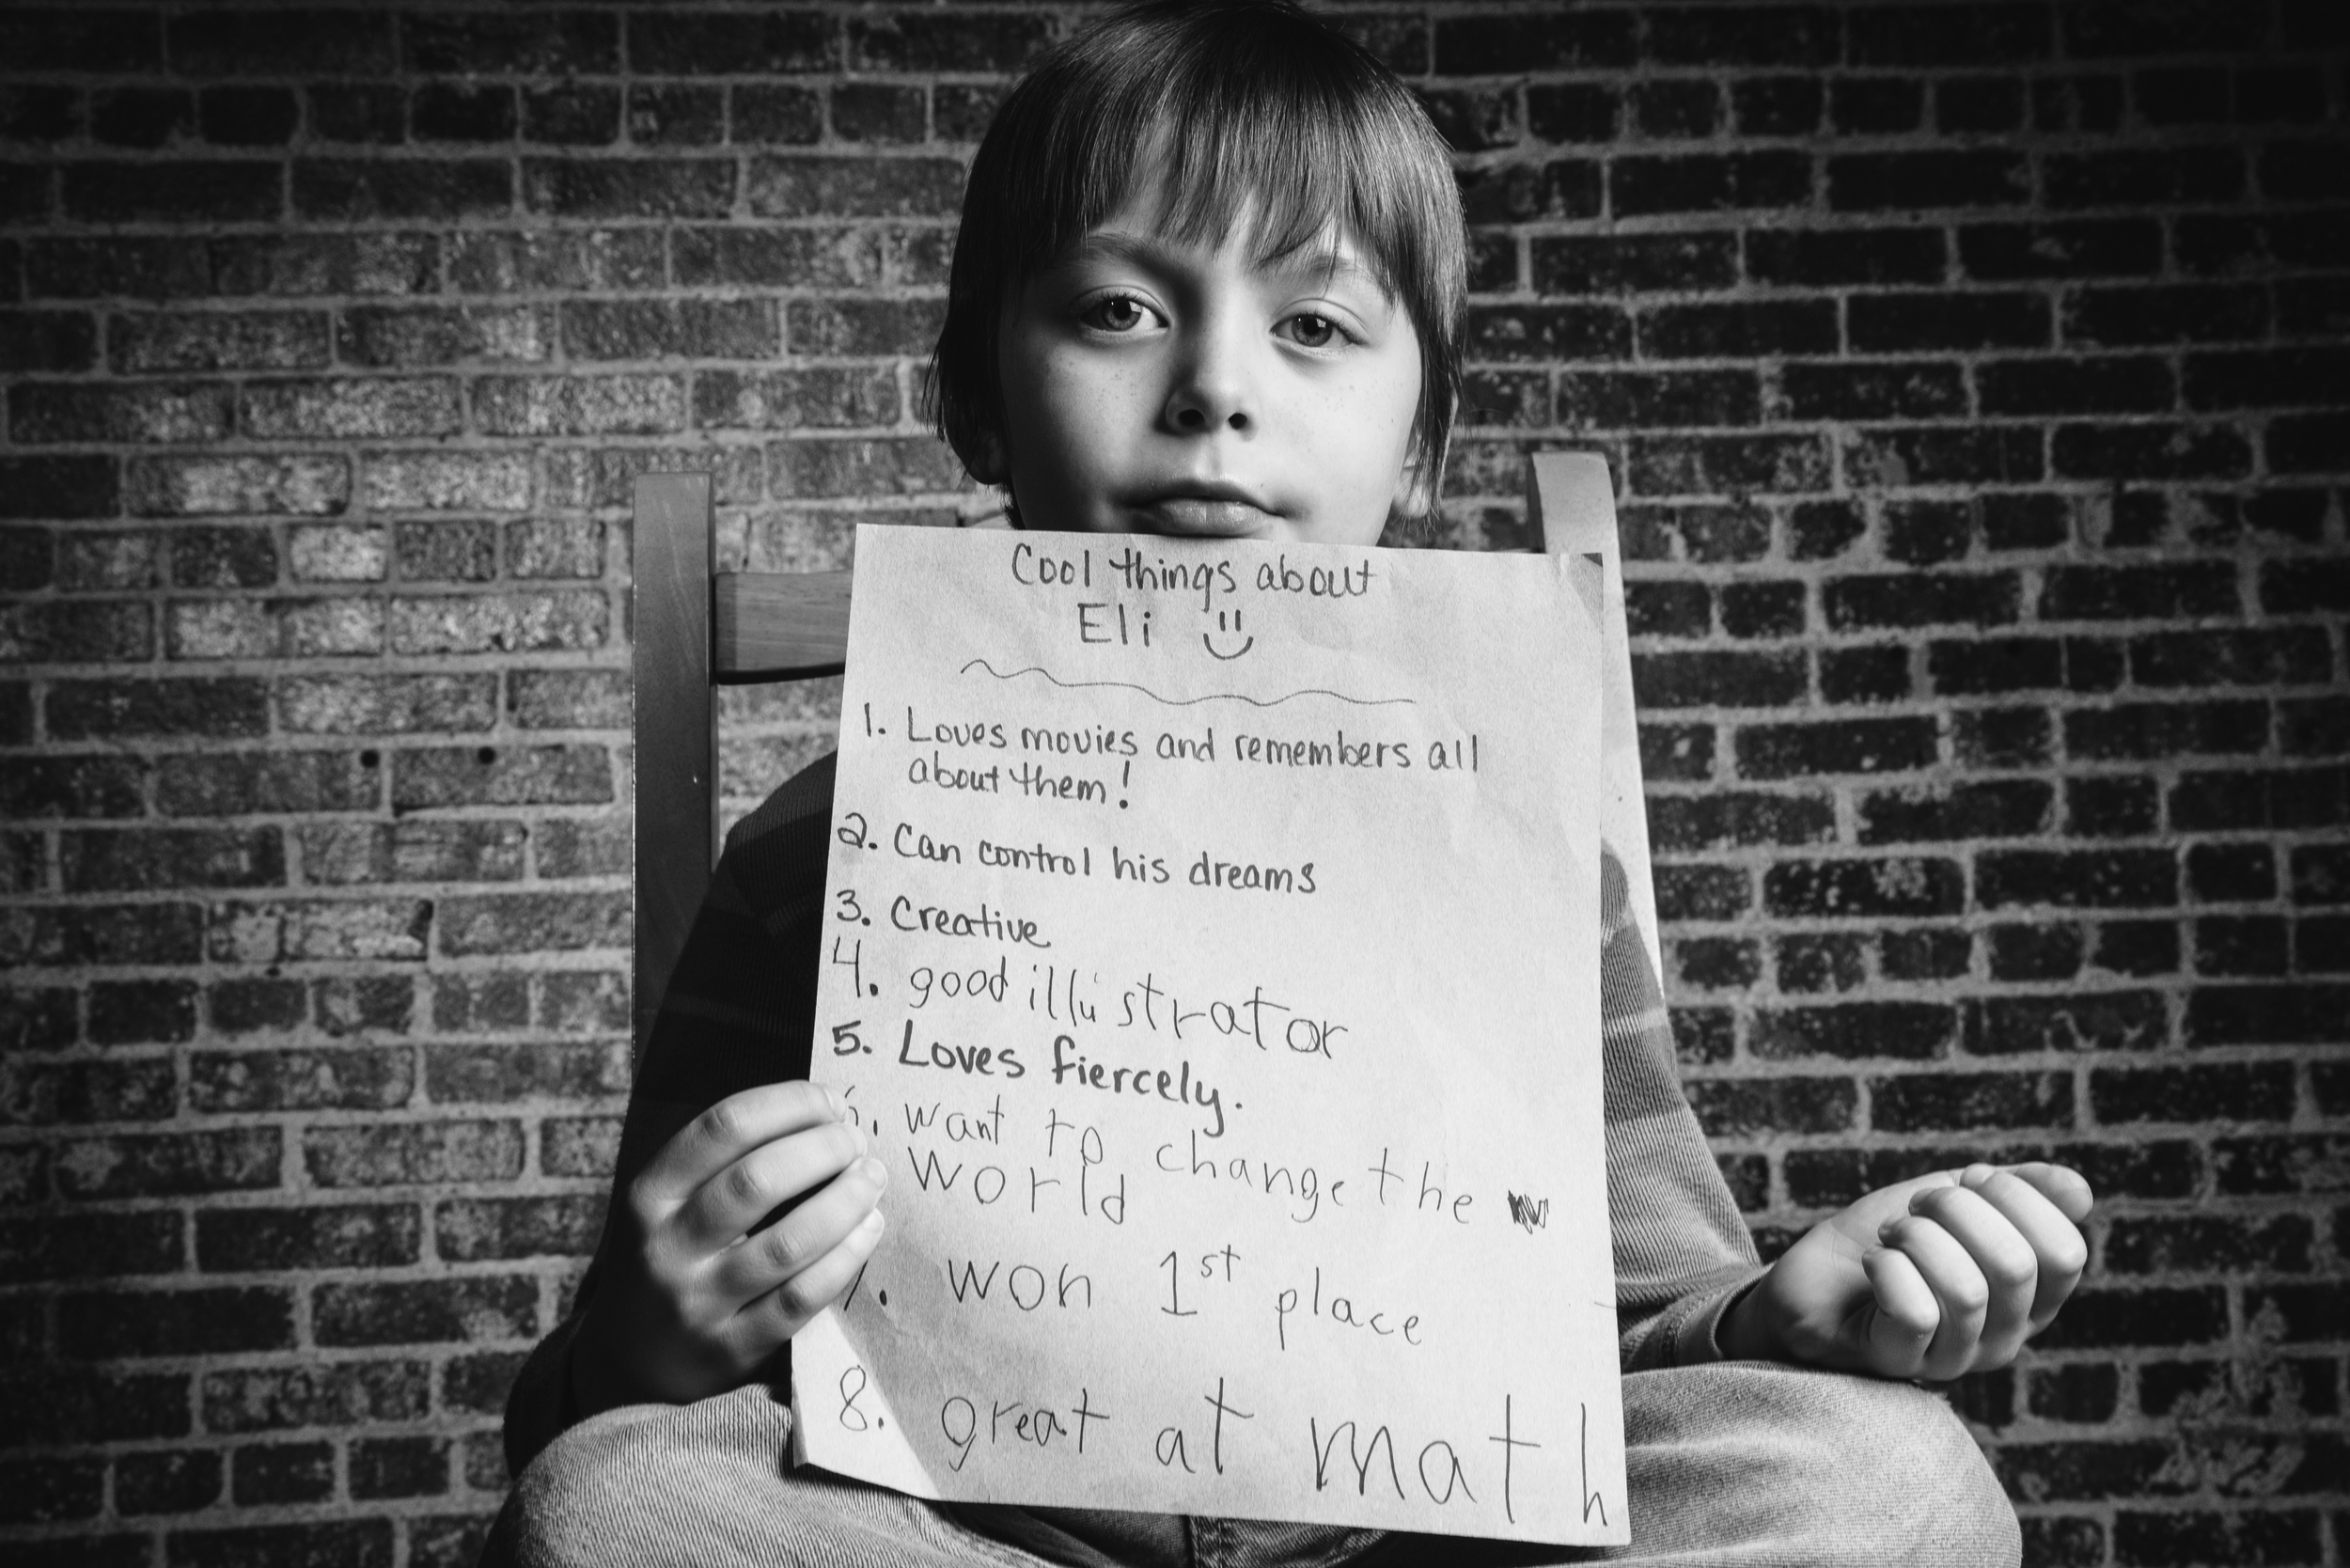 Cool things about
Eli
1. Loves movies and remembers all
about them!
2. Can control his dreams
3. Creative
4. good illustrator
5. Loves fiercely.
6. want to change the
world
7. won 1st place
8. great at math